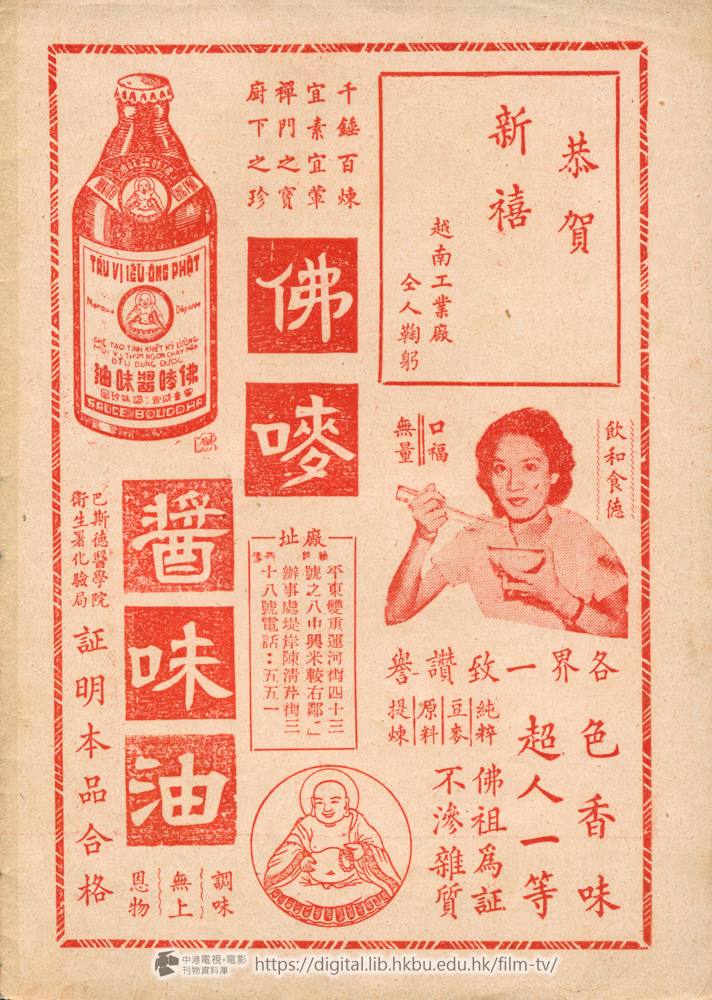 恭賀
新禧
越南工業廠
仝人鞠躬
千錘百煉
宜素宜葷
禪門之寶
廚下之珍
佛嘜
醬味油
TÀU VỊ IỆU ÔNG PHẬT
Marque Déposée
CHẾ TẠO TINH KHIẾT KỸ LƯỠNG
MÙI VỊ THƠM NGON CHAY MẶN
ĐỀU DÙNG ĐƯỢC
佛嘜醬味油
SAUCE BOUDDHA
飲和食德
口福
無量
各界一致讚譽
色香味
超人一等
純粹
豆麥
原料
提煉
佛祖爲証
不滲雜質
廠址
平東雙重運河街四十三
號之八中興米較右鄰」
辦事處堤岸陳清芹街三
十八號電話：五五一
巴斯德醫學院
衛生署化驗局
証明本品合格
調味
無上
恩物
中港電視・電影
刊物資料庫
https://digital.lib.hkbu.edu.hk/film-tv/